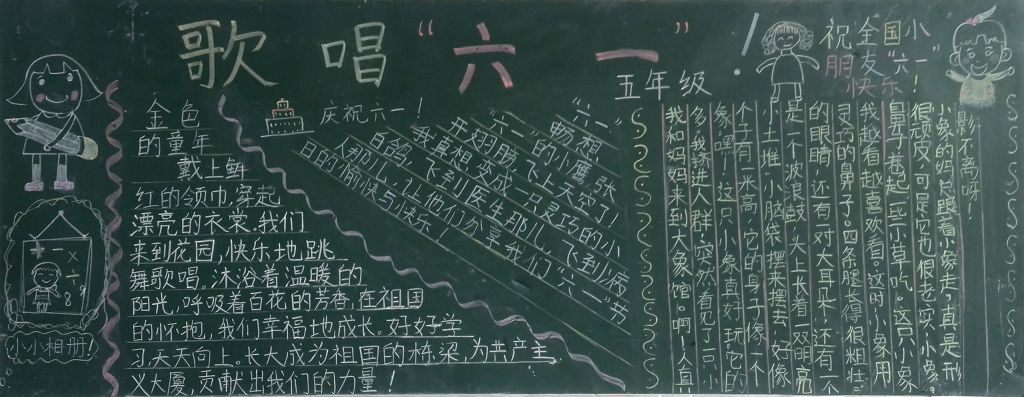 歌唱“六一”
五年级
！祝全国小
朋友“六一”
快乐！
金色
的童年
戴上鲜
红的领巾,穿起
漂亮的衣裳.我们
来到花园,快乐地跳
舞歌唱。沐浴着温暖的
阳光,呼吸着百花的芳香.在祖国
的怀抱,我们幸福地成长。好好学
习天天向上。长大成为祖国的栋梁,为共产主
义大厦,贡献出我们的力量！
庆祝六一！
“六一”
畅想
“六一”的小鹰,张
开翅膀,飞上天空了！
我真想变成一只灵巧的小
白鸽,飞到医生那儿,飞到小病
人那儿,让他们分享我们“六一”节
日的愉快与快乐！
我和妈妈来到大象馆。啊！人真
多,我挤进人群,突然看见了一只小
象,嘿！这只小象真好玩它的
个子有一米高,它的身子像一个
小土堆,小脑袋摆来摆去,好像
是一个波浪鼓,头上长着一双明亮
的眼睛,还有一对大耳朵,还有一个
灵巧的鼻子,四条腿长得很粗壮。
我越看越喜欢看。这时,小象用
鼻子卷起一些小草吃。这只小象
很顽皮,可是见也很老实,小象
小象的妈总跟着小象走,真是形
影不离呀！
小小相册！